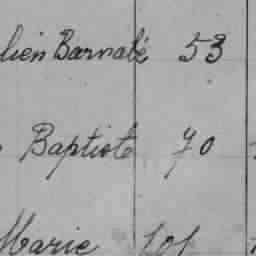 lien Barnabé 53
Baptiste 70
Marie 101